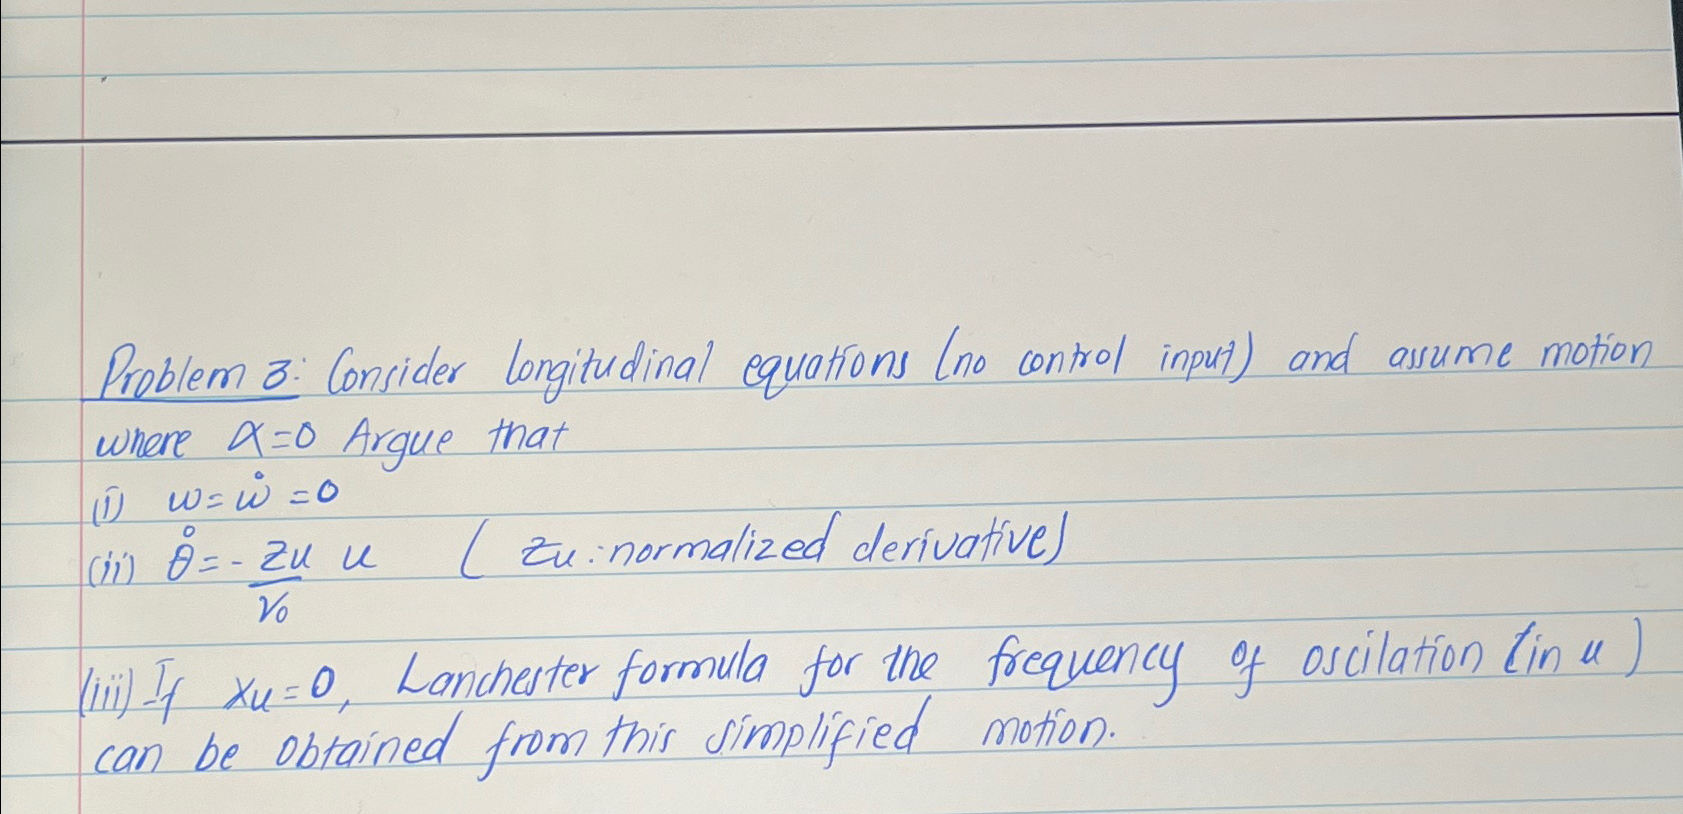 Problem 3: Consider longitudinal equations (no control input) and assume motion
where α=0 Argue that
(i) w=ẇ=0
(ii) θ̇=-Zu/V₀ u (Zu: normalized derivative)
(iii) If Xu=0, Lanchester formula for the frequency of oscilation (in u)
can be obtained from this simplified motion.